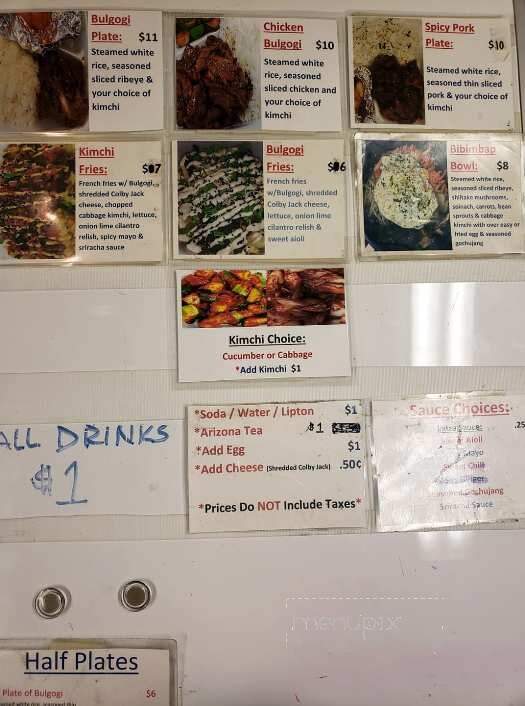 Bulgogi
Plate: $11
Steamed white
rice, seasoned
sliced ribeye &
your choice of
kimchi
Chicken
Bulgogi $10
Steamed white
rice, seasoned
sliced chicken and
your choice of
kimchi
Spicy Pork
Plate: $10
Steamed white rice,
seasoned thin sliced
pork & your choice of
kimchi
Kimchi
Fries: $7
French fries w/ Bulgogi,
shredded Colby Jack
cheese, chopped
cabbage kimchi, lettuce,
onion lime cilantro
relish, spicy mayo &
sriracha sauce
Bulgogi
Fries: $6
French fries
w/Bulgogi, shredded
Colby Jack cheese,
lettuce, onion lime
cilantro relish &
sweet aioli
Bibimbap
Bowl: $8
Steamed white rice,
seasoned sliced ribeye,
shiitake mushrooms,
spinach, carrots, bean
sprouts & cabbage
kimchi with over easy or
fried egg & seasoned
gochujang
Kimchi Choice:
Cucumber or Cabbage
*Add Kimchi $1
ALL DRINKS
$1
*Soda / Water / Lipton $1
*Arizona Tea $1
*Add Egg $1
*Add Cheese (Shredded Colby Jack) .50¢
*Prices Do NOT Include Taxes*
Sauce Choices:
.25
Aioli
Mayo
Chili
Gochujang
Sriracha Sauce
menupix
Half Plates
Plate of Bulgogi $6